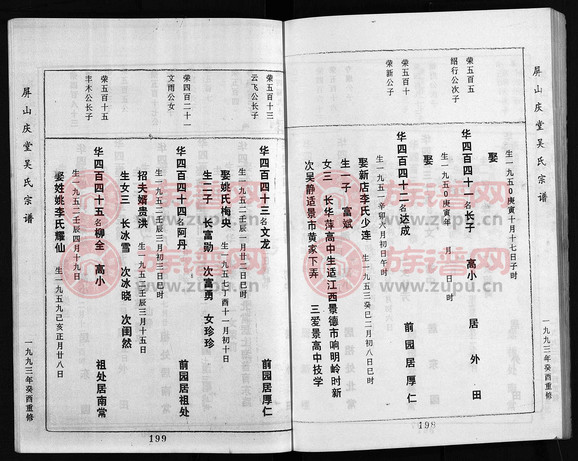 屏山庆堂吴氏宗谱
荣五百五
绍行公次子
华四百四十一名长子 高小 居外田
生一九五0庚寅年十月十七日子时
娶
生一九五0庚寅年 月 日 时
荣五百十
荣新公子
华四百四十二名达成 前园居厚仁
生一九五一辛卯六月初日午时
娶新店李氏少连
生一九五三癸巳二月初八日巳时
生一子 富斌
女三 长华萍高中生适江西景德市响明岭时新
次吴静适景市黄家下弄 三爱景高中技学
一九九三年癸酉重修
198
荣五百十三
云飞公长子
华四百四十三名文龙 前园居厚仁
生一九五二壬辰一月廿二日巳时
娶姚氏梅央
生一九五七丁酉十一月初十日
生二子 长富勋 次富勇 女珍珍
荣四百二十一
文雨公女
华四百四十四名阿丹 前园居祖处
生一九五二壬辰三月初三日巳时
招夫婿贵洪
生一九五二壬辰三月十五日
生女三 长冰雪 次冰晓 次闺然
荣五百十五
丰木公长子
华四百四十五名柳全 高小 祖处居南常
生一九五二壬辰四月十九日
娶姓姚李氏耀仙
生一九五九己亥正月廿八日
屏山庆堂吴氏宗谱
一九九三年癸酉重修
199
族谱网
www.zupu.cn